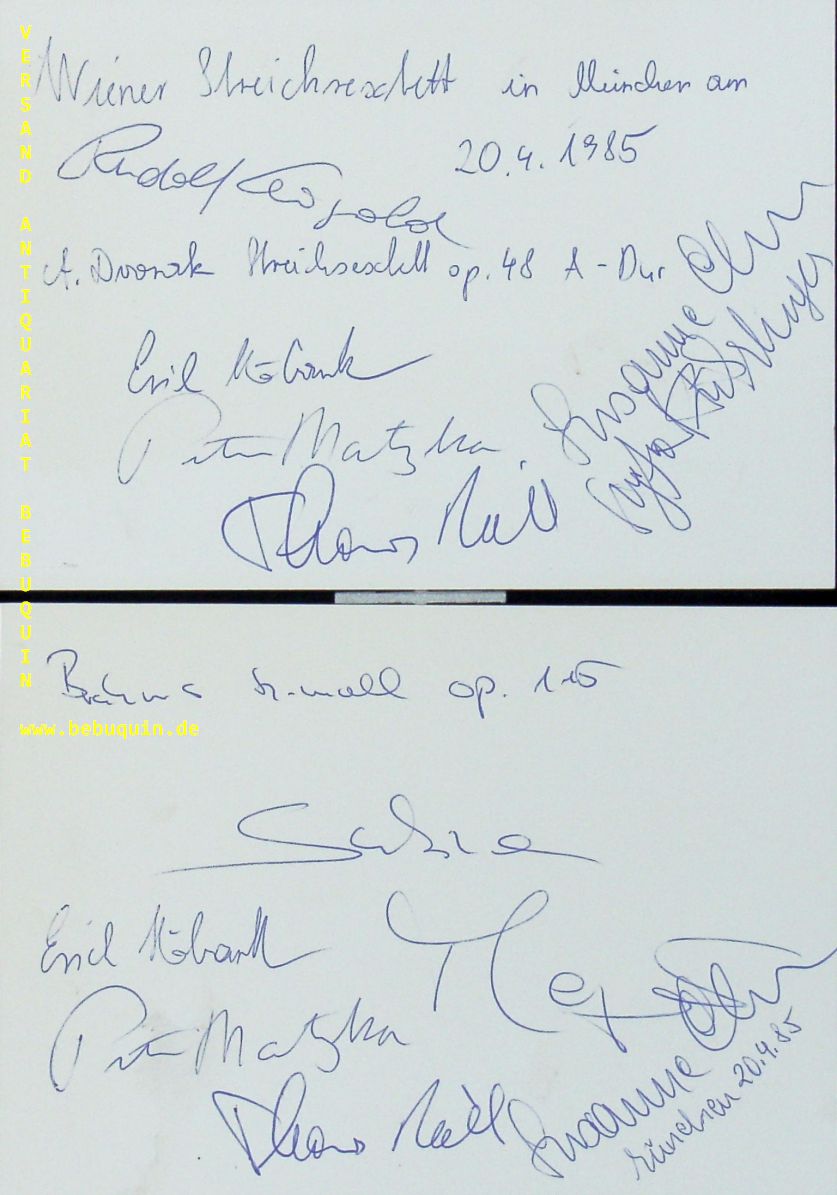 Wiener Streichsextett in München am
20.4.1985
Rudolf Leopold
A. Dvorak Streichsextett op. 48 A-Dur
Erich Höbarth
Peter Matzka
Thomas Riebl
Susanne
Brahms h-moll op. 115
Sabine
Meyer
Erich Höbarth
Peter Matzka
Thomas Riebl
Susanne
München 20.4.85
VERSAND ANTIQUARIAT BEBUQUIN
www.bebuquin.de